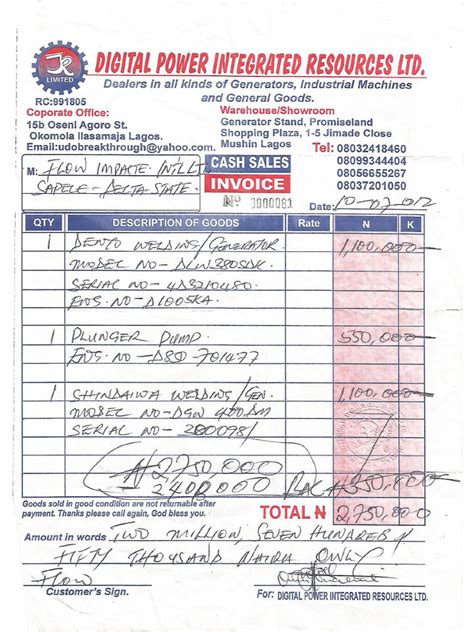 JR
LIMITED
DIGITAL POWER INTEGRATED RESOURCES LTD.
Dealers in all kinds of Generators, Industrial Machines
and General Goods.
RC:991805
Coporate Office:
15b Oseni Agoro St.
Okomola Ilasamaja Lagos.
Email:udobreakthrough@yahoo.com.
Warehouse/Showroom
Generator Stand, Promiseland
Shopping Plaza, 1-5 Jimade Close
Mushin Lagos
Tel: 08032418460
08099344404
08056655267
08037201050
M: FLOW IMPACTE INT'L LTD
CAPELE - DELTA-STATE
CASH SALES
INVOICE
Nº 0000081
Date: 10-07-012
QTY DESCRIPTION OF GOODS Rate N K
1 DENYO WELDING/GENERATOR 1,100,000
MODEL NO- DLW380SDK
SERIAL NO- 4D3210480
ENG. NO- D1005KA
1 PLUNGER PUMP. 550,000
ENG. NO -D8D-701477
1 SHINDAIWA WELDING/GEN. 1,100,000
MODEL NO-DGW 400DM
SERIAL NO- 200098/
N2750,000
2400,000 BAL N350,000
Goods sold in good condition are not returnable after
payment. Thanks please call again, God bless you.
TOTAL N 2,750,000
Amount in words TWO MILLION, SEVEN HUNDRED &
FIFTY THOUSAND NAIRA ONLY
FLOW
Customer's Sign.
For: DIGITAL POWER INTEGRATED RESOURCES LTD.